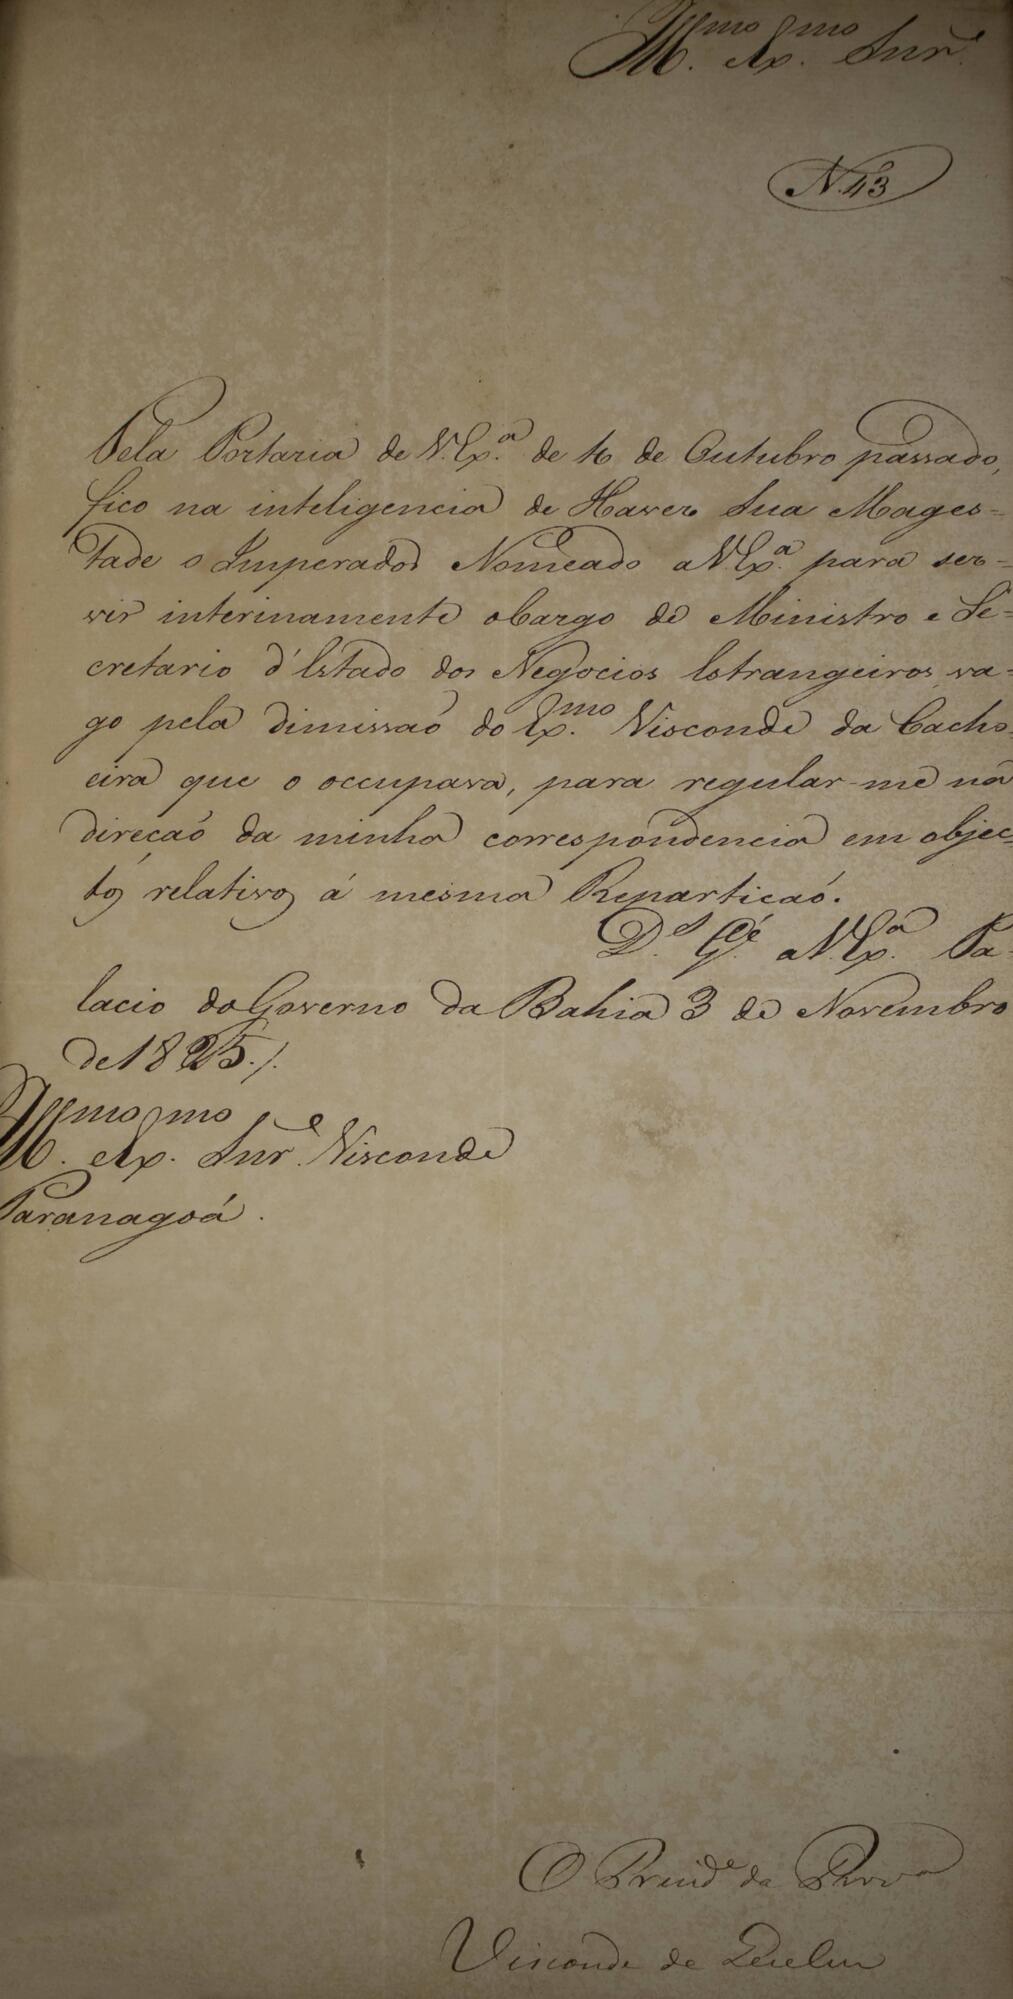 Ill.mo Ex.mo Snr.e
N.43
Pela Portaria de V.Ex.a de 10 de Outubro passado,
fico na inteligencia de Haver Sua Mages=
tade o Imperador Nomeado a V.Ex.a para ser=
vir interinamente o Cargo de Ministro e Se=
cretario d'Estado dos Negocios Estrangeiros, va=
go pela dimissaõ do Ex.mo Visconde da Cacho
eira que o occupava, para regular-me na
direcaõ da minha correspondencia em objec
tos relativos á mesma Repartiçaõ.
D.s G.de a V.Ex.a Pa=
lacio do Governo da Bahia 3 de Novembro
de 1825./.
Ill.mo Ex.mo Snr.e Visconde
Paranagoá.
O Presid.e da Prov.a
Visconde de Queluz